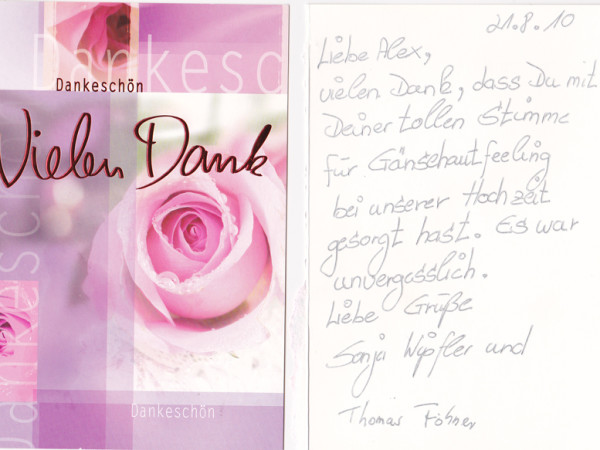 Dankesc
Dankeschön
Vielen Dank
Dankesch
Dankeschön
21.8.10
Liebe Alex,
vielen Dank, dass Du mit
Deiner tollen Stimme
für Gänsehautfeeling
bei unserer Hochzeit
gesorgt hast. Es war
unvergesslich.
Liebe Grüße
Sonja Wipfler und
Thomas